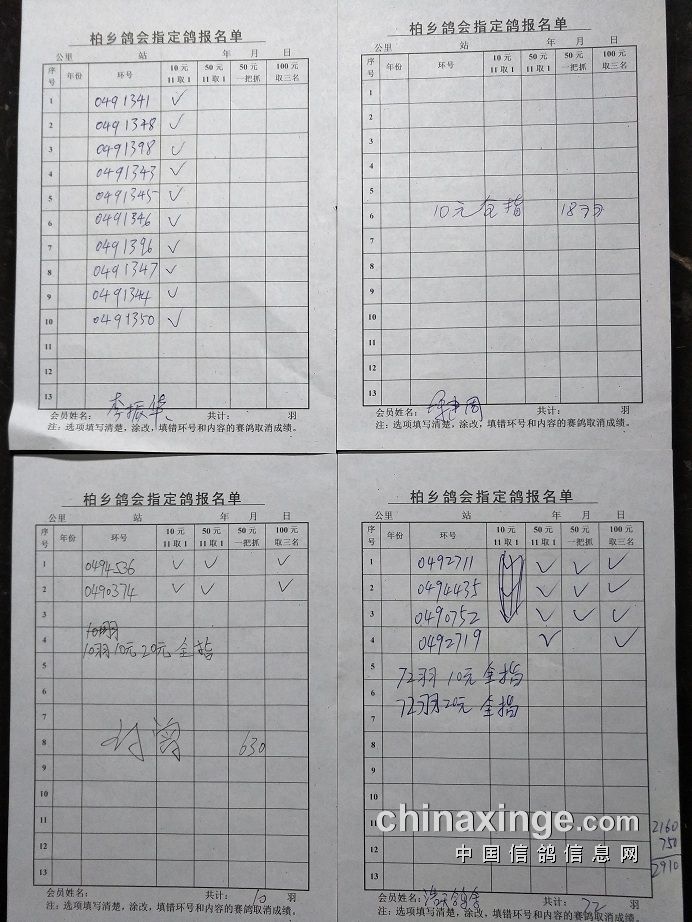 柏乡鸽会指定鸽报名单
公里 站 年 月 日
序号 年份 环号 10元 11取1 50元 11取1 50元 一把抓 100元 取三名
1 0491341 ✓
2 0491348 ✓
3 0491398 ✓
4 0491343 ✓
5 0491345 ✓
6 0491346 ✓
7 0491396 ✓
8 0491347 ✓
9 0491344 ✓
10 0491350 ✓
11
12
13
会员姓名： 李振华 共计： 羽
注：选项填写清楚，涂改，填错环号和内容的赛鸽取消成绩。
柏乡鸽会指定鸽报名单
公里 站 年 月 日
序号 年份 环号 10元 11取1 50元 11取1 50元 一把抓 100元 取三名
1
2
3
4
5
6 10元全指 18羽
7
8
9
10
11
12
13
会员姓名： 共计： 羽
注：选项填写清楚，涂改，填错环号和内容的赛鸽取消成绩。
柏乡鸽会指定鸽报名单
公里 站 年 月 日
序号 年份 环号 10元 11取1 50元 11取1 50元 一把抓 100元 取三名
1 0494536 ✓ ✓ ✓
2 0490374 ✓ ✓ ✓
3
4 10羽10元20元全指
5
6
7
8 630
9
10
11
12
13
会员姓名： 共计： 10 羽
注：选项填写清楚，涂改，填错环号和内容的赛鸽取消成绩。
柏乡鸽会指定鸽报名单
公里 站 年 月 日
序号 年份 环号 10元 11取1 50元 11取1 50元 一把抓 100元 取三名
1 0492711 ✓ ✓ ✓ ✓
2 0494435 ✓ ✓ ✓ ✓
3 0490752 ✓ ✓ ✓ ✓
4 0492719 ✓ ✓
5 72羽10元全指
6 72羽20元全指
7
8
9
10
11 2160
12 750
13 2910
会员姓名： 共计： 72 羽
注：选项填写清楚，涂改，填错环号和内容的赛鸽取消成绩。
chinaxinge.com
中国信鸽信息网